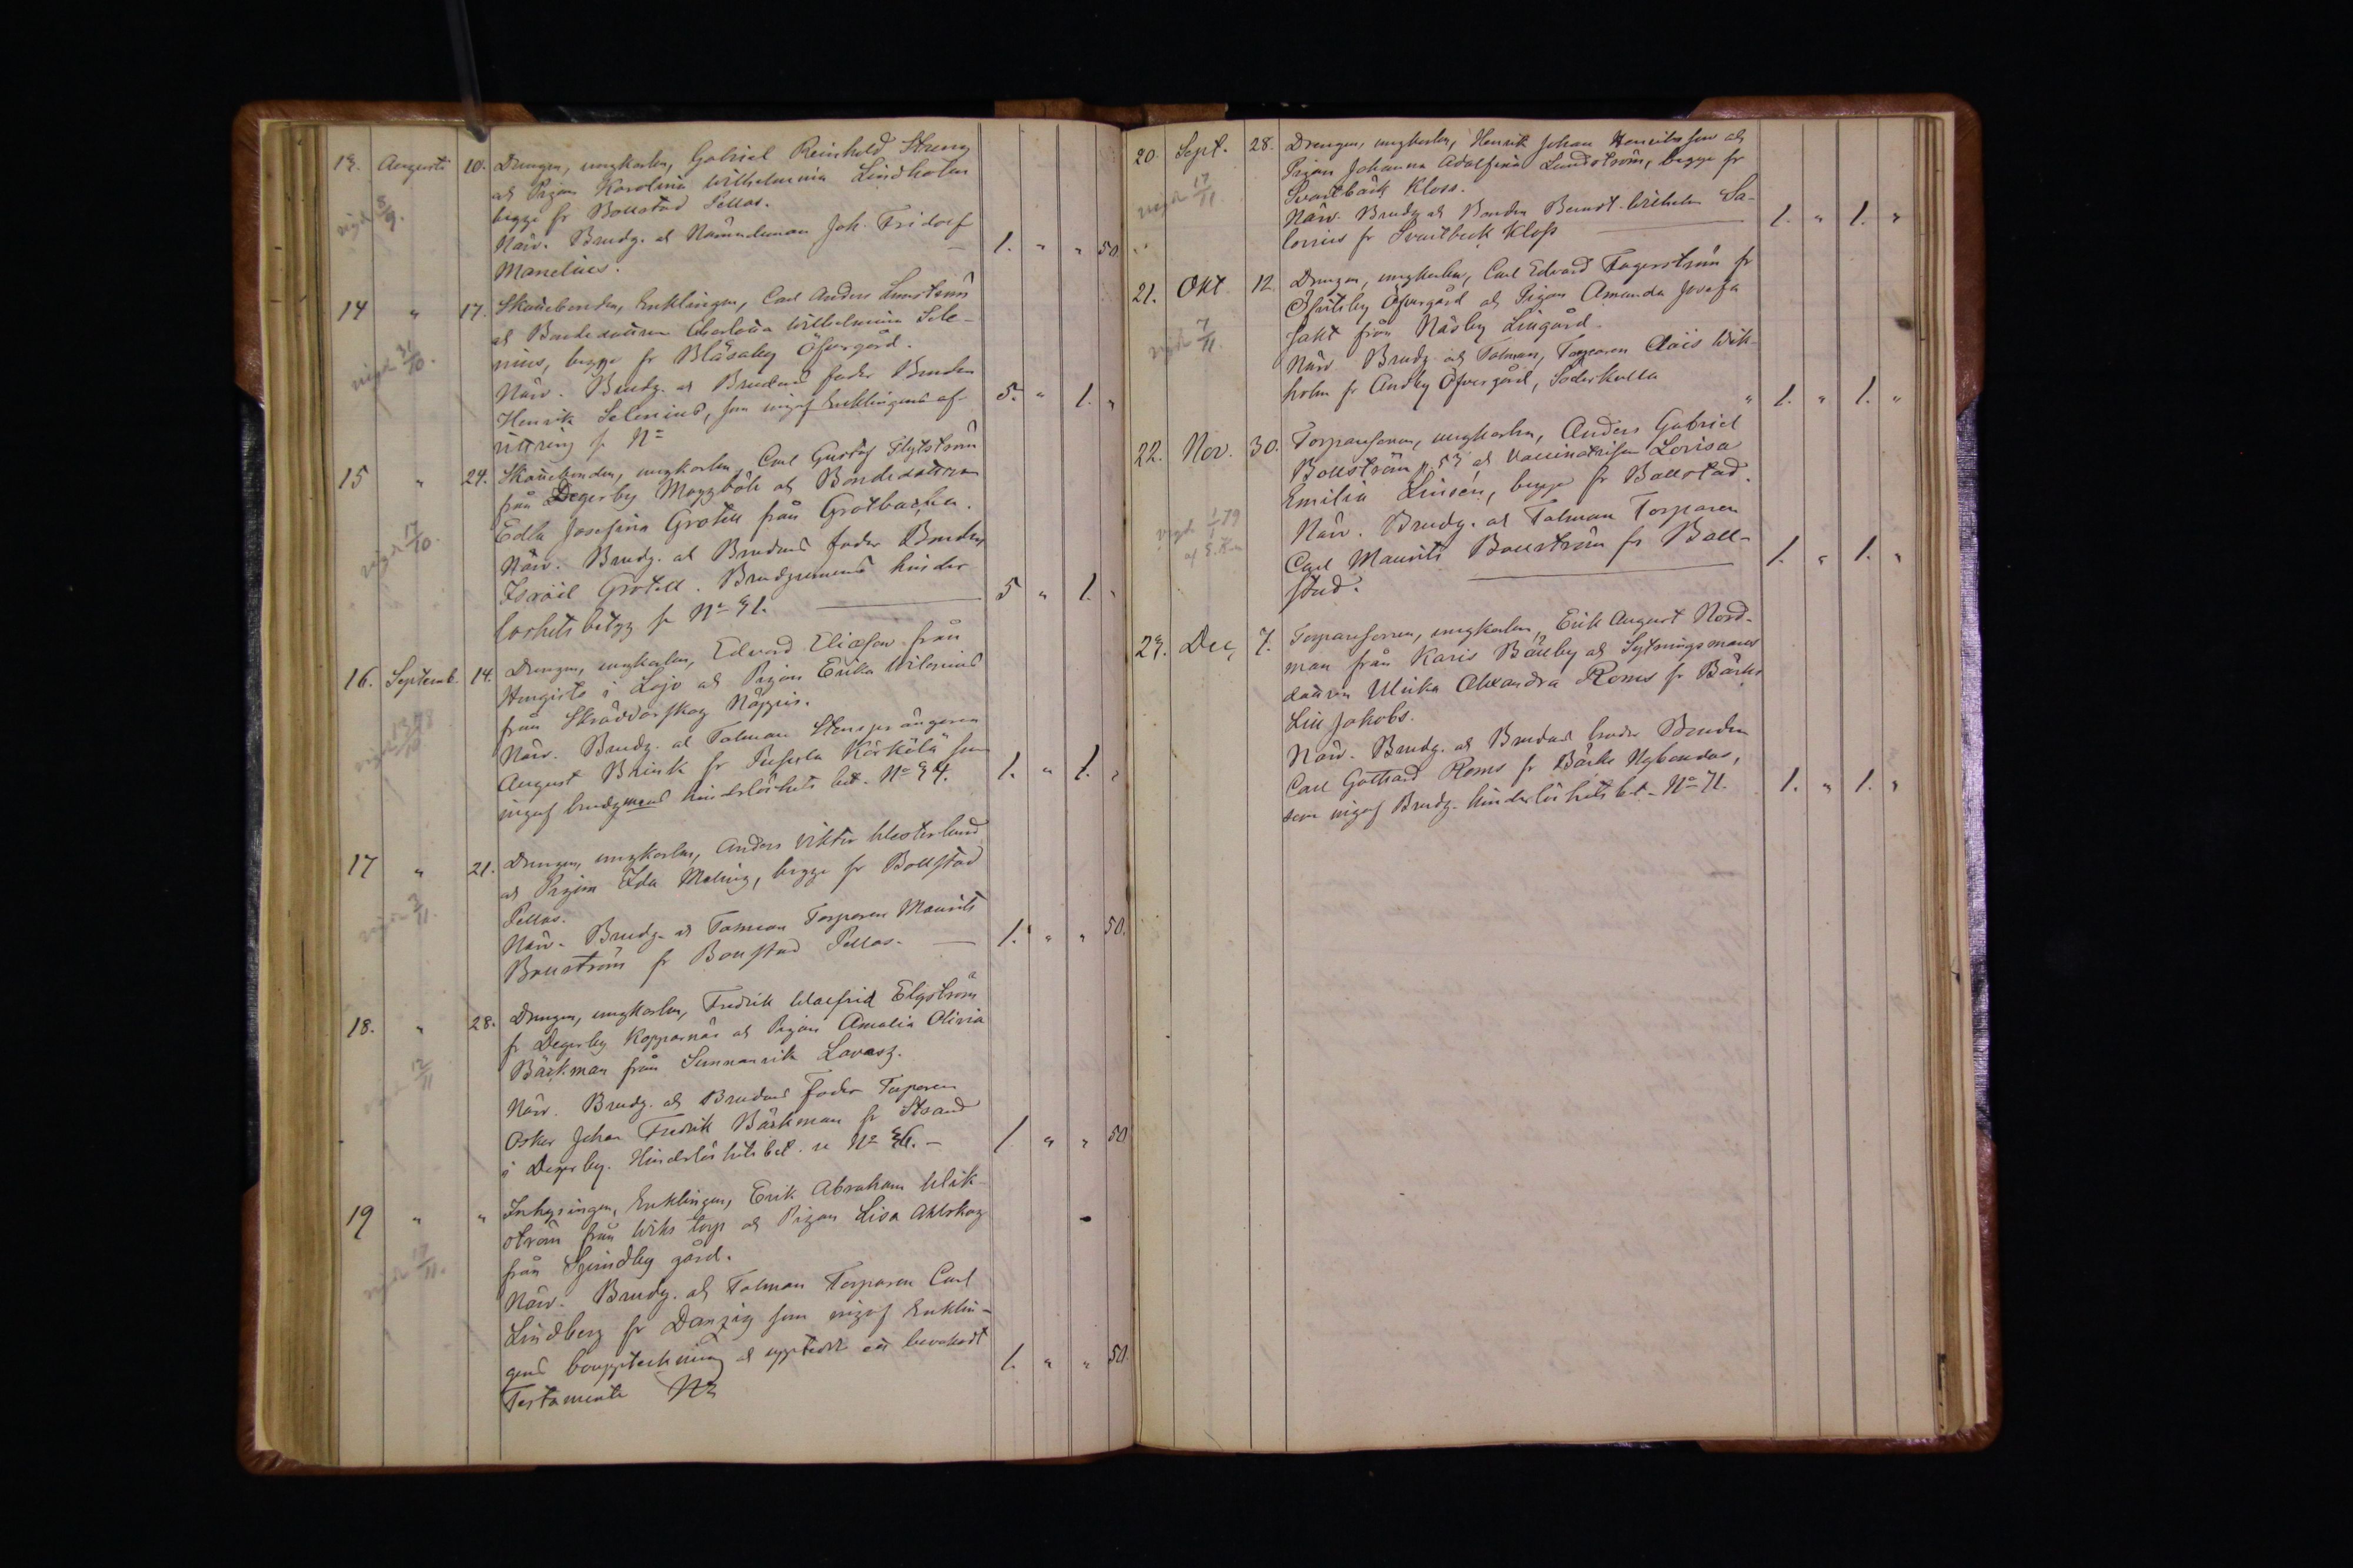 13. Augusti 10. Drengen, ungkarlen, Gabriel Reinhold Streng
och Pigan Karolina Wilhelmina Lindholm
begge fr Bollstad Pellas.
vigd 8/9.
Närv. Brudg. och Nämndeman Joh. Fridolf
Manelius. 1. " " 50
14 " 17. Skattebonden, Enklingen, Carl Anders
och Bondedottren Charlotta Wilhelmina Sele-
nius, begge fr Bläsaby Öfvergård.
vigd 31/10.
Närv. Brudg. och Brudens fader Bonden
Henrik Selenius, som ingaf Enklingens af- 5. " 1. "
vittring fr No
15 " 24. Skattebonden, ungkarlen, Carl Gustaf Flytström
från Degerby Moggböle och Bondedottren
Edla Josefina Grotell från Grotbacka.
vigd 17/10.
Närv. Brudg. och Brudens fader Bonden
Israel Grotell. Brudgummens hinder-
löshets betyg fr No 31. 5 " 1. "
16. Septemb. 14. Drengen, ungkarlen, Edvard Eliasson från
Hongisto i Lojo och Pigan Erika Wilenius
från Skräddarskog Näppis.
Närv. Brudg. och Talman Stensprängaren
August Brink fr Pusula Kärkölä som
ingaf brudgmens hinderlöshets bet. No 34. 1. " 1. "
17 " 21. Drengen, ungkarlen, Anders Viktor Westerlund
och Pigan Ida Maling, begge fr Bollstad
Pellas.
vigd 3/11.
Närv. Brudg. och Talman Torparen Maurits
Bollström fr Bollstad Pellas. 1. " " 50.
18. " 28. Drengen, ungkarlen, Fredrik Walfrid Elgström
fr Degerby Kopparnäs och Pigan Amalia Olivia
Bäckman från Sunnanvik Lavasz.
12/11
Närv. Brudg. och Brudens fader Torparen
Oskar Johan Fredrik Bäckman fr Strand
i Degerby. Hinderlöshets bet. se No 36. 1. " " 50
19 " " Inhysingen, Enklingen, Erik Abraham Wik-
ström från Wiks torp och Pigan Lisa Ahlskog
från Sjundby gård.
vigd 17/11.
Närv. Brudg. och Talman Torparen Carl
Lindberg fr Danzig som ingaf Enklin-
gens bouppteckning och upptedt ett bevakadt
Testamente No 1. " " 50.
20 Sept. 28. Drengen, ungkarlen, Henrik Johan Henriksson och
Pigan Johanna Adolfina Lundström, begge fr
Svartbäck Kloss.
vigd 17/11.
Närv. Brudg. och Bonden Berndt Wilhelm Sa-
lonius fr Svartbeck Kloss 1. " 1. "
21. Okt 12 Drengen, ungkarlen, Carl Edvard Fagerström fr
Öfvitsby Öfvergård och Pigan Amanda Josefa
Sakt från Näsby Lingård.
vigd 7/11.
Närv Brudg. och Talman, Torparen Clais Wik-
holm fr Andby Öfvergård, Söderkulla " 1. " 1. "
22. Nov. 30. Torparesonen, ungkarlen, Anders Gabriel
Bollström p. 53 och Vaccinatrisen Lovisa
Emilia Linsén, begge fr Bollstad.
vigd 1/1 79
Närv. Brudg. och Talman Torparen
Carl Maurits Bollström fr Boll-
stad. 1. " 1. "
23. Dec, 7. Torparesonen, ungkarlen, Erik August Nord-
man från Karis Bällby och Sytningsmans
dottren Ulrika Alexandra Roms fr Bäcks
Lill Jakobs.
Närv. Brudg. och Brudens broder Bonden
Carl Gotthard Roms fr Bäcks Nybondas,
som ingaf Brudg. hinderlöshets bet. No 71. 1. " 1. "